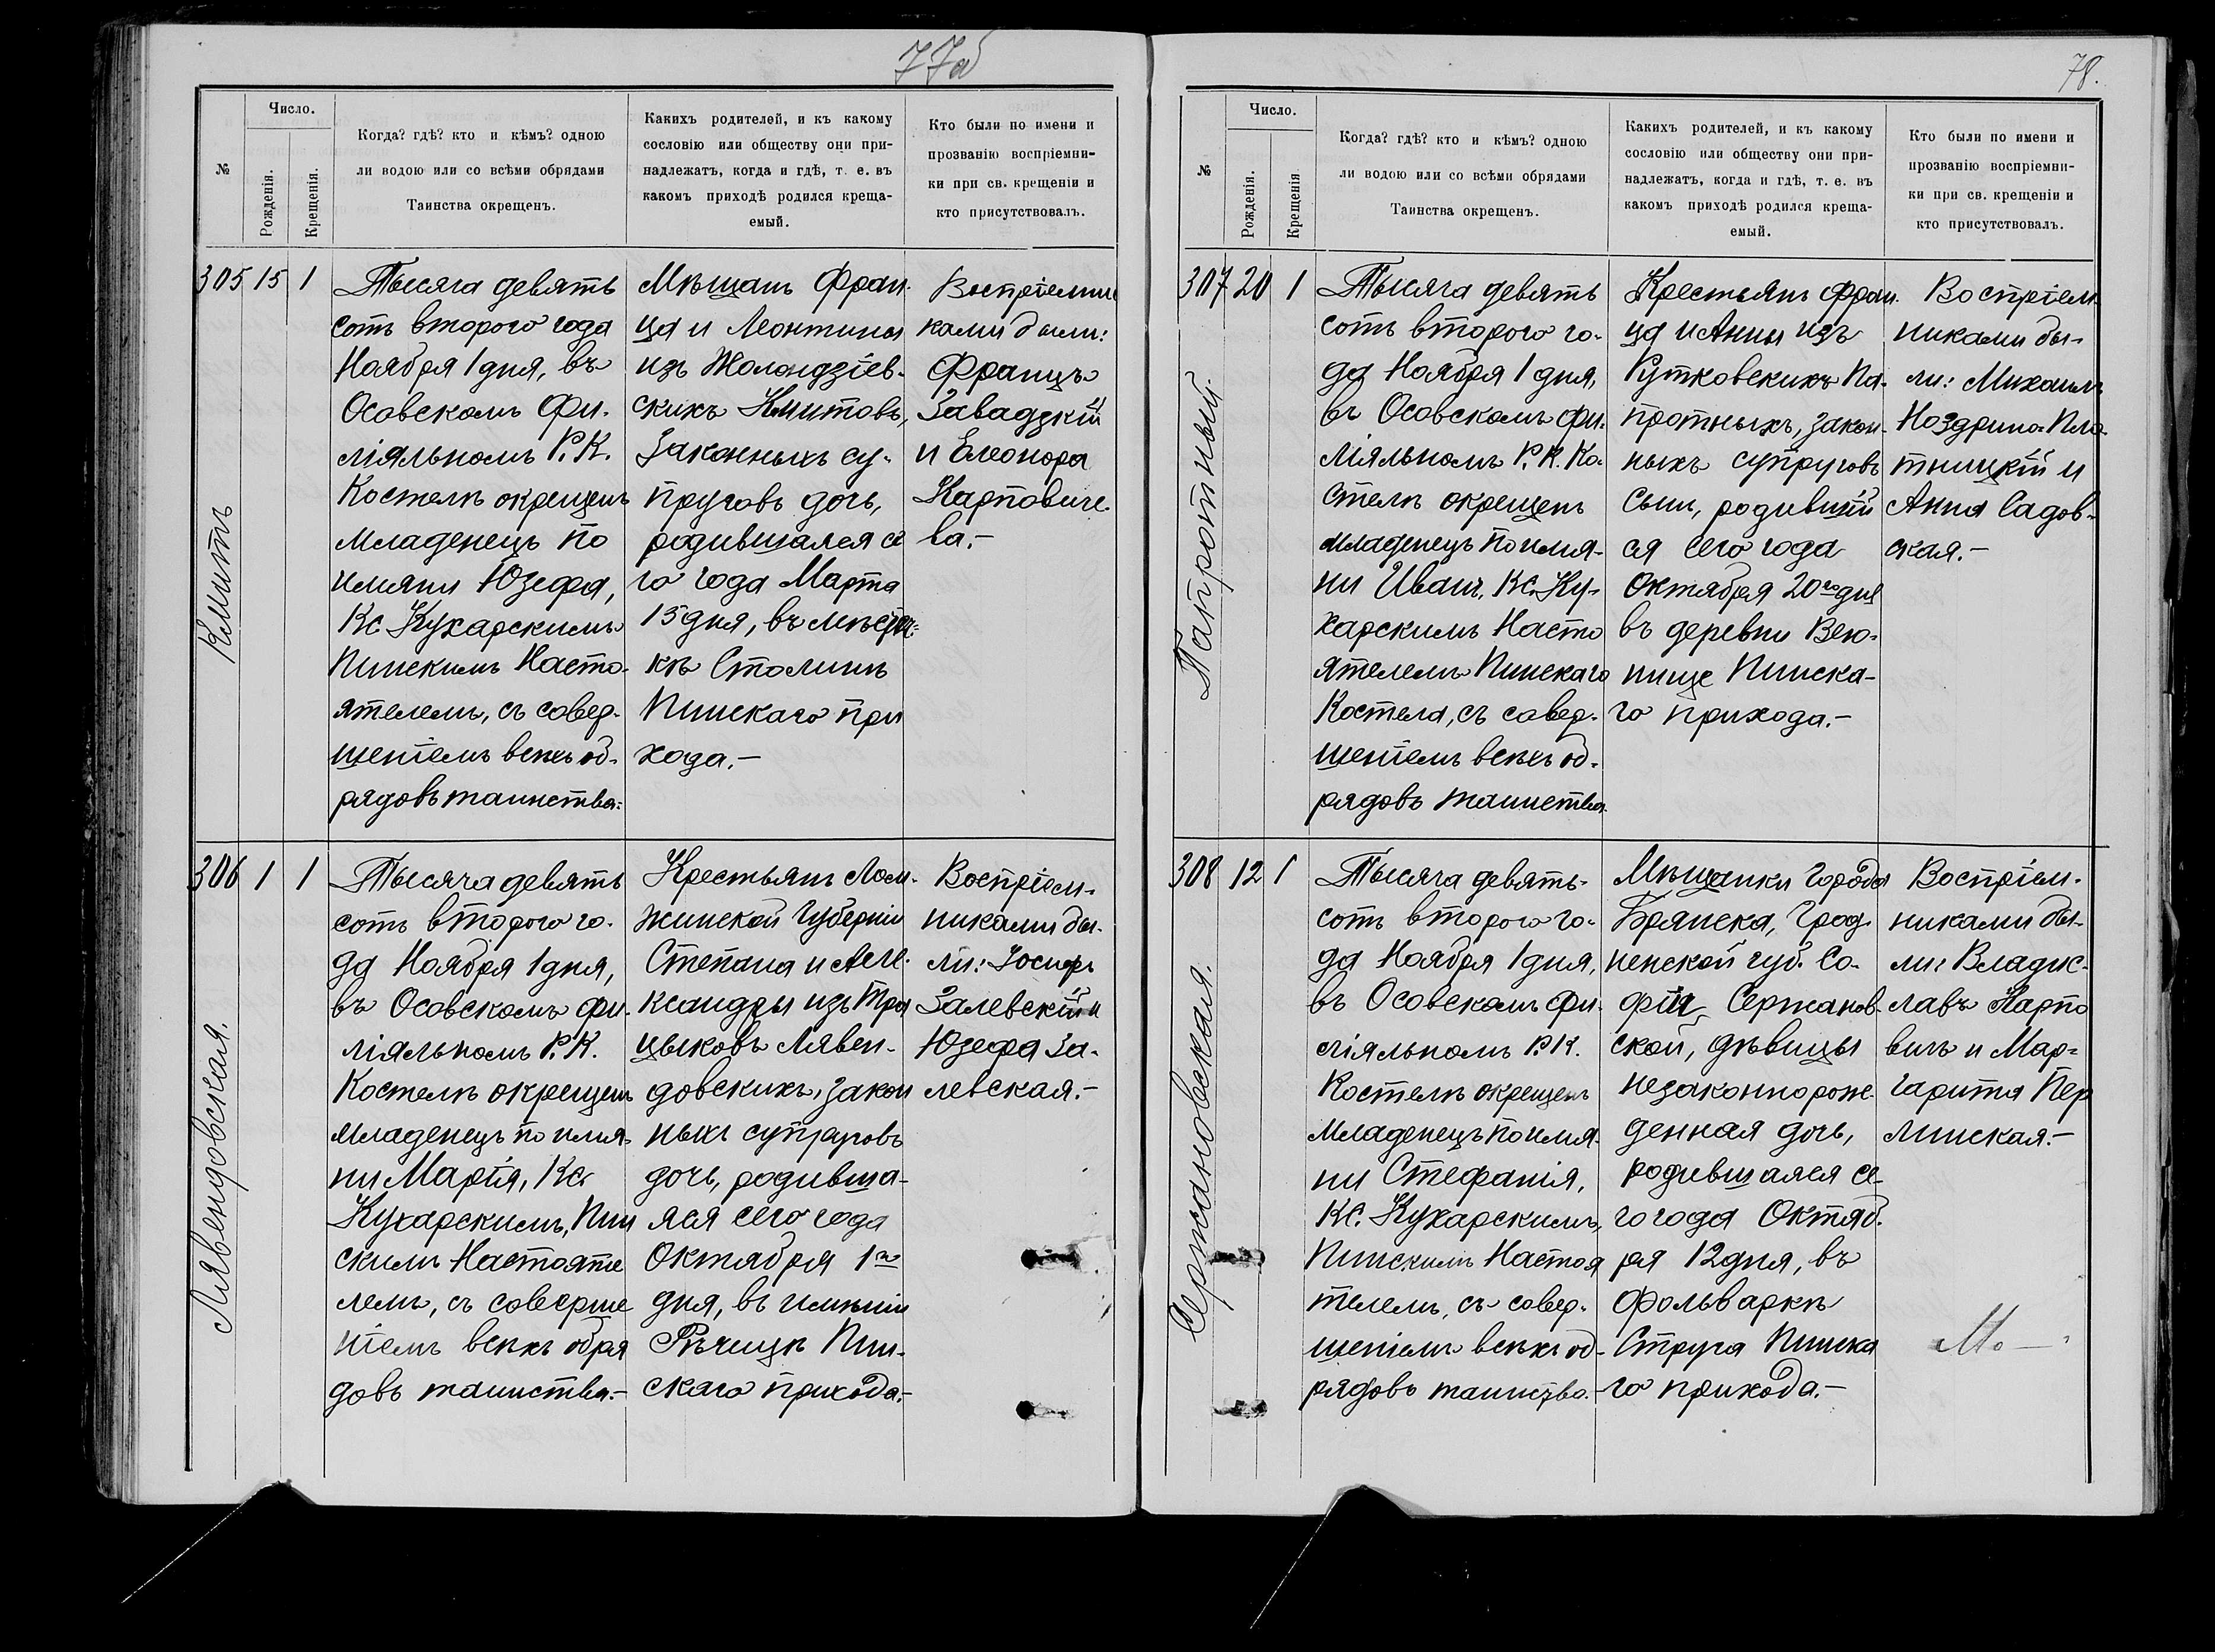 77об
№
Число.
Рожденія.
Крещенія.
Когда? гдѣ? кто и кѣмъ? одною
ли водою или со всѣми обрядами
Таинства окрещенъ.
Какихъ родителей, и къ какому
сословію или обществу они при-
надлежатъ, когда и гдѣ, т. е. въ
какомъ приходѣ родился креща-
емый.
Кто были по имени и
прозванію воспріемни-
ки при св. крещеніи и
кто присутствовалъ.
305 15 1
Кмитъ
Тысяча девять
сотъ второго года
Ноября 1 дня, въ
Осовскомъ Фи-
ліяльномъ Р. К.
Костелѣ окрещенъ
младенецъ по
имяни Юзефа,
Кс. Кухарскимъ
Пинскимъ Насто-
ятелемъ, съ совер-
шеніемъ всѣхъ об-
рядовъ таинства.-
Мѣщанъ Фран-
ца и Леонтины
изъ Жолондзіев-
скихъ Кмитовъ,
Законныхъ су-
пруговъ дочь,
родившаяся се
го года Марта
15 дня, въ мѣстеч-
кѣ Столинѣ
Пинскаго при
хода.-
Воспріемни
ками были:
Францъ
Завадзкій
и Елеонора
Карповиче-
ва.-
306 1 1
Лявендовская.
Тысяча девять
сотъ второго го-
да Ноября 1 дня,
въ Осовскомъ фи-
ліяльномъ Р. К.
Костелѣ окрещенъ
младенецъ по имя-
ни Марія, Кс.
Кухарскимъ, Пин
скимъ Настояте
лемъ, съ соверше
ніемъ всѣхъ обря
довъ таинства.-
Крестьянъ Лом-
жинской Губерніи
Степана и Але-
ксандры изъ Тро
цыковъ Лявен-
довскихъ, закон
ныхъ супруговъ
дочь, родивша-
яся сего года
Октября 1го
дня, въ имѣніи
Рѣчицѣ Пин-
скаго прихода.-
Воспріем-
никами бы-
ли: Іосифъ
Залевскій и
Юзефа За-
левская.-
78.
№
Число.
Рожденія.
Крещенія
Когда? гдѣ? кто и кѣмъ? одною
ли водою или со всѣми обрядами
Таинства окрещенъ.
Какихъ родителей, и къ какому
сословію или обществу они при-
надлежатъ, когда и гдѣ, т. е. въ
какомъ приходѣ родился креща-
емый.
Кто были по имени и
прозванію воспріемни-
ки при св. крещеніи и
кто присутствовалъ.
307 20 1
Папротный.
Тысяча девять
сотъ второго го-
да Ноября 1 дня,
въ Осовскомъ фи-
ліяльномъ Р. К. Ко-
стелѣ окрещенъ
младенецъ по имя-
ни Иванъ, Кс. Ку-
харскимъ Насто
ятелемъ Пинскаго
Костела, съ совер-
шеніемъ всѣхъ об-
рядовъ таинства.
Крестьянъ Фран-
ца и Анны изъ
Рутковскихъ Па-
протныхъ, закон-
ныхъ супруговъ
сынъ, родившій
ся сего года
Октября 20го дня
въ деревни Велю-
нище Пинска-
го прихода.-
Воспріем-
никами бы-
ли: Михаилъ
Ноздрина-Пло
тницкій и
Анна Садов-
ская.-
308 12 1
Сержановская.
Тысяча девять-
сотъ второго го-
да Ноября 1 дня,
въ Осовскомъ фи-
ліяльномъ Р. К.
Костелѣ окрещенъ
младенецъ по имя-
ни Стефанія,
Кс. Кухарскимъ,
Пинскимъ Настоя
телемъ, съ совер-
шеніемъ всѣхъ об-
рядовъ таинства.-
Мѣщанки города
Брянска, Грод-
ненской губ. Со-
фіи Сержанов-
ской, дѣвицы
незаконнорож-
денная дочь,
родившаяся се-
го года Октяб-
ря 12 дня, въ
фольваркѣ
Струга Пинска
го прихода.-
Воспріем-
никами бы-
ли: Владис-
лавъ Карпо
вичъ и Мар-
гарита Пер
линская.-